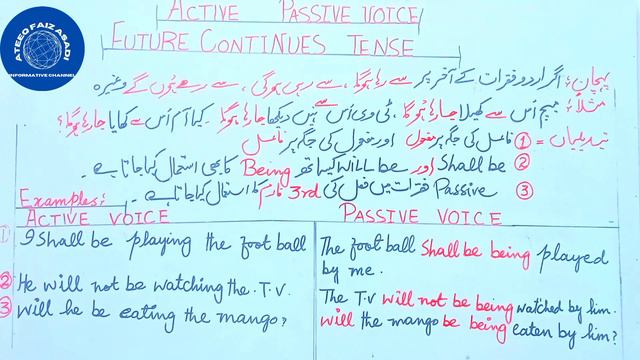 ATEEQ FAIZ ASADI
INFORMATIVE CHANNEL
ACTIVE PASSIVE VOICE
FUTURE CONTINUES TENSE
پہچان؛ اگر اردو فقرات کے آخر پر سے رہا ہوگا، سے رہی ہوگی، سے رہے ہوں گے وغیرہ
مثلاً؛ میچ اُس سے کھیلا جارہا ہوگا، ٹی وی اُس سے نہیں دیکھا جارہا ہوگا۔ کیا آم اُس سے کھایا جارہا ہوگا؟
تبدیلیاں = ① فاعل کی جگہ پر مفعول اور مفعول کی جگہ پر فاعل
② Shall be اور Will be کیساتھ Being کا بھی استعمال کیا جاتا ہے۔
③ Passive فقرات میں فعل کی 3rd فارم کا استعمال کیا جاتا ہے۔
Examples:
ACTIVE VOICE PASSIVE VOICE
① I Shall be playing the foot ball
The foot ball Shall be being played
by me.
② He will not be watching the T.V.
The T.V will not be being watched by him.
③ will he be eating the mango?
will the mango be being eaten by him?